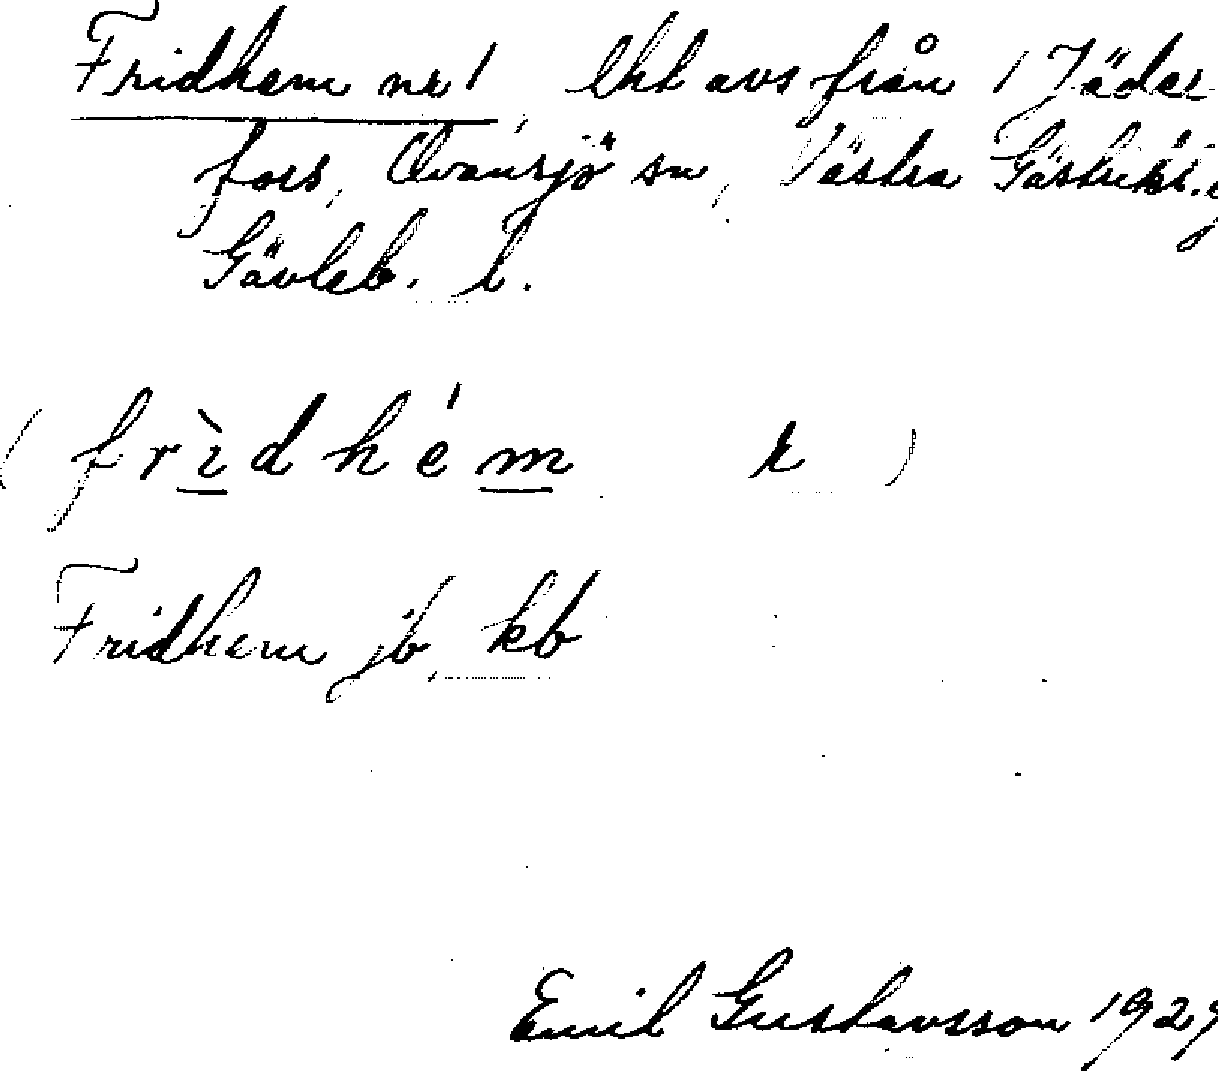 Fridhem nr 1, lht avs från 1 Jäder
fors, Ovansjö sn, Västra Gästrikl.
Gävleb. l.
( frìdhém r )
Fridhem jb, kb
Emil Gustavsson 1929